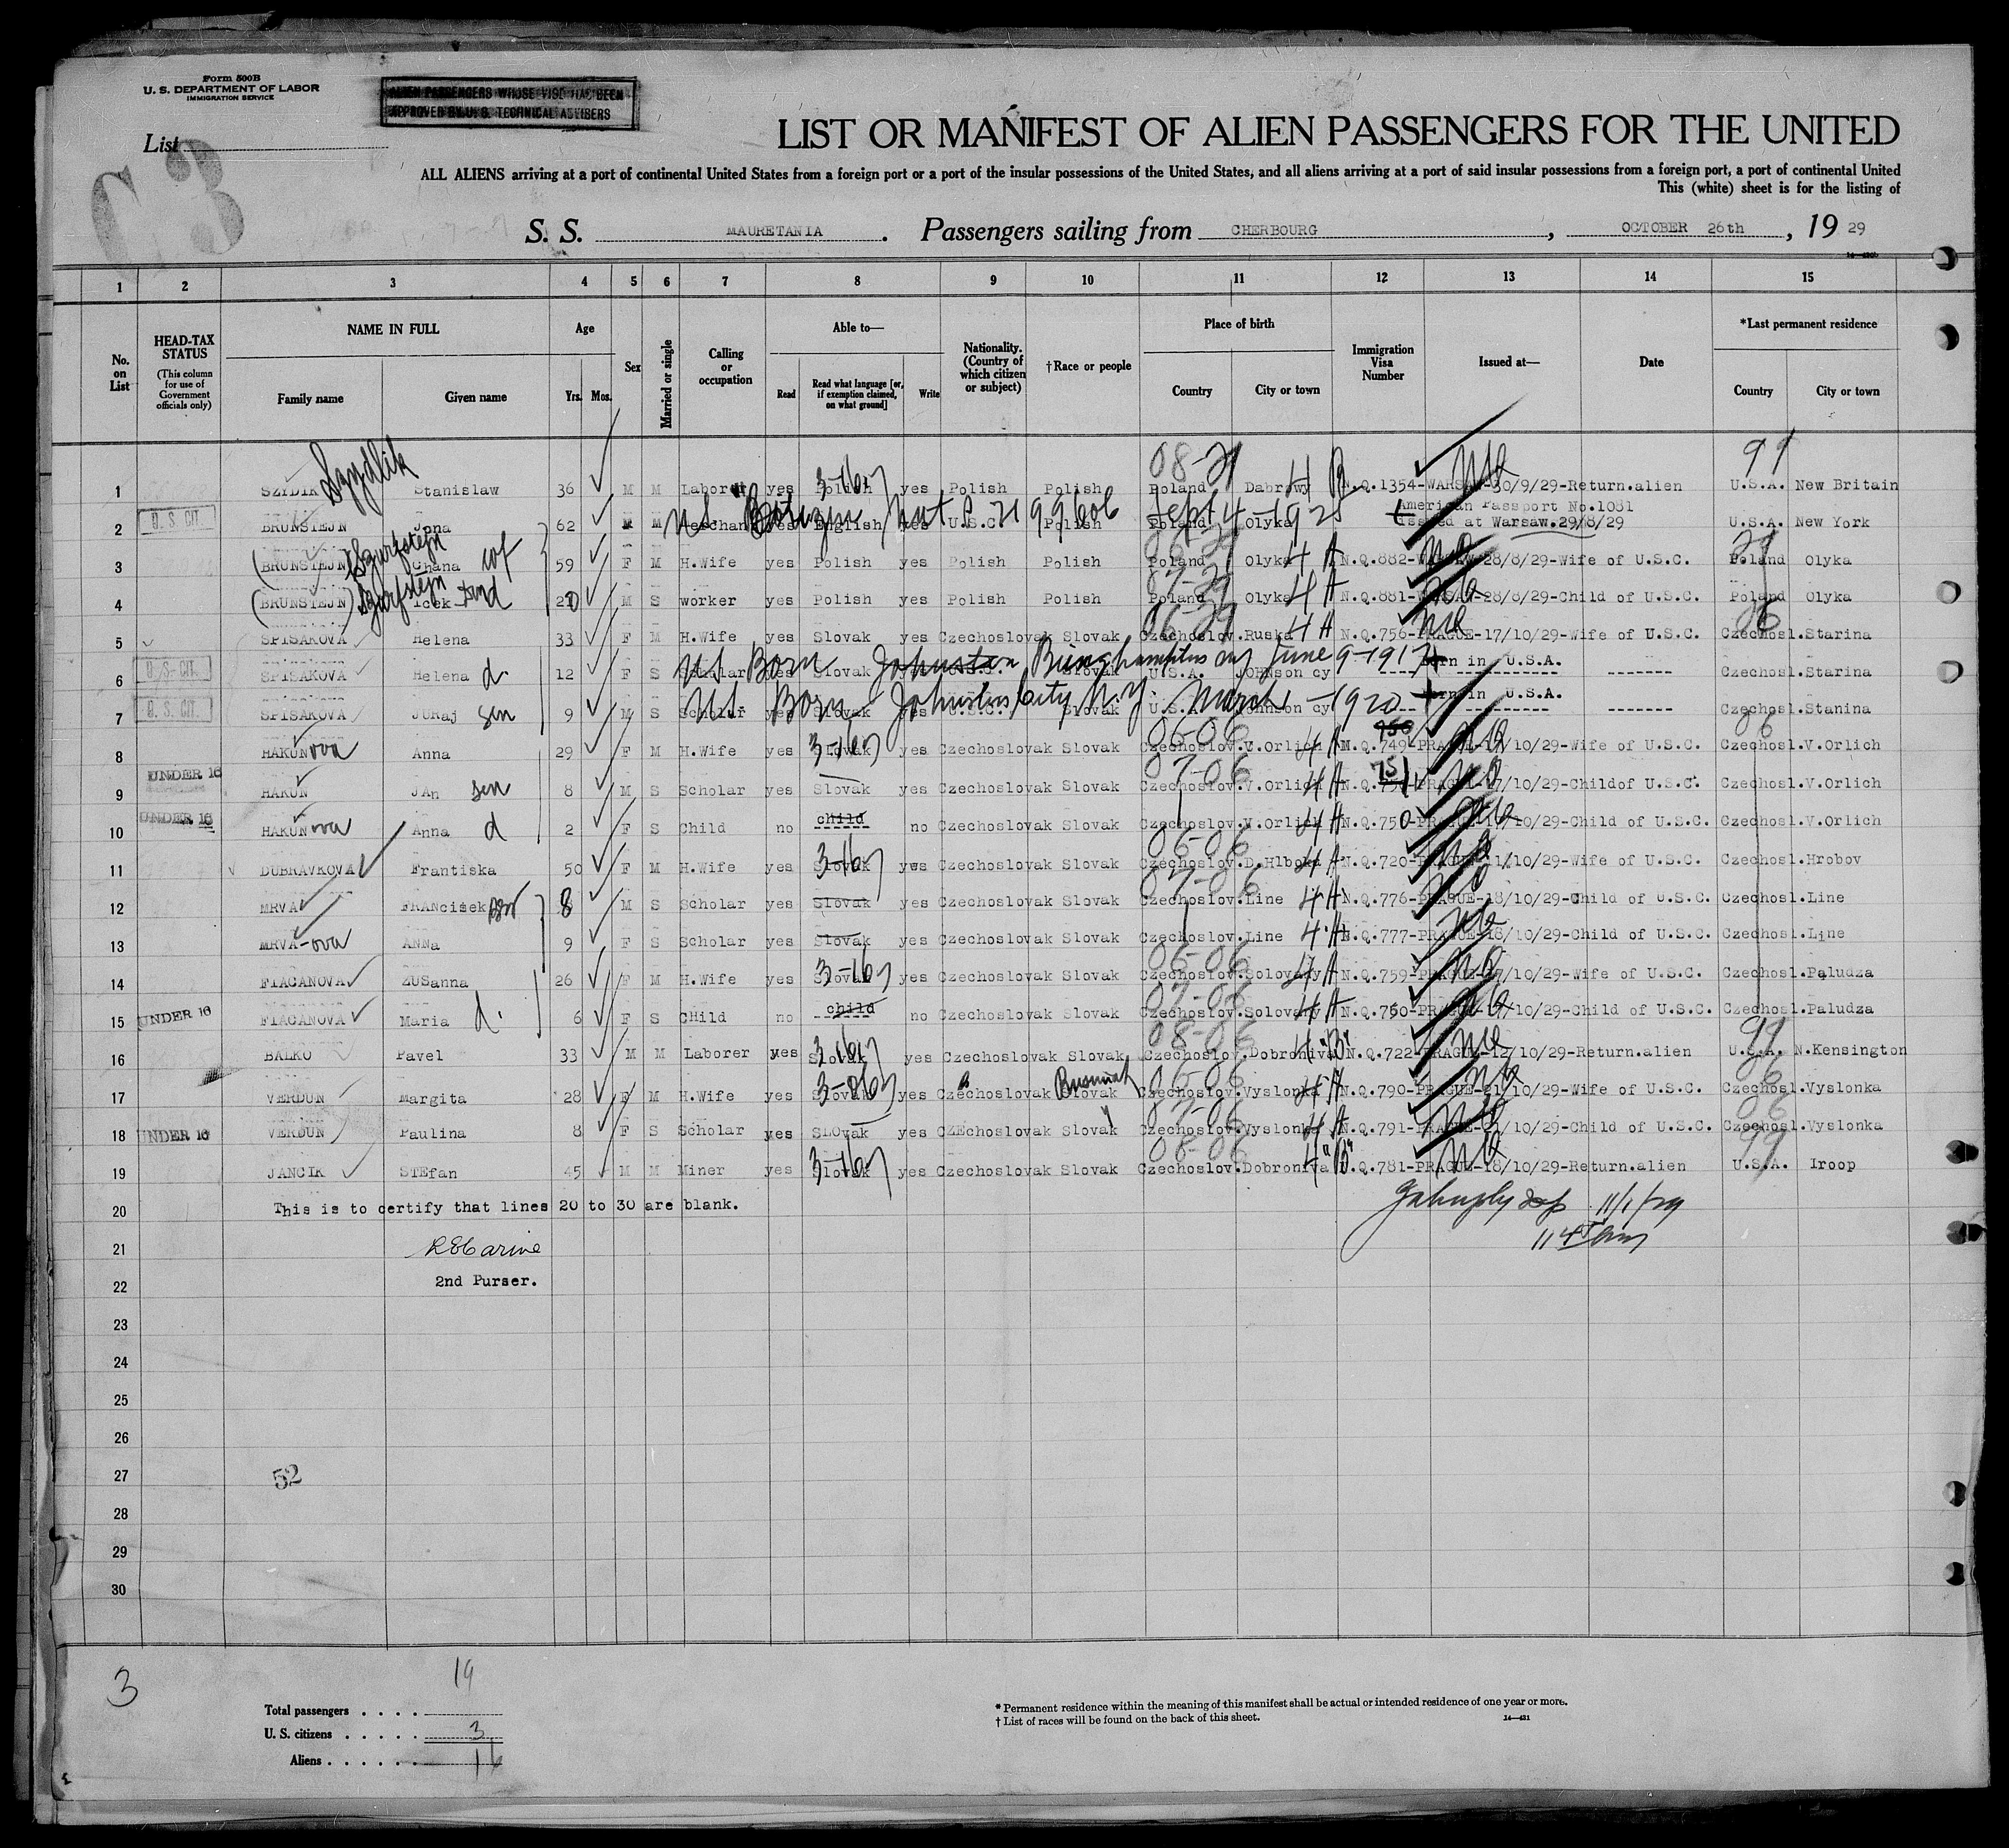 Form 500B
U. S. DEPARTMENT OF LABOR
IMMIGRATION SERVICE
ALIEN PASSENGERS WHOSE VISE HAS BEEN
APPROVED BY U. S. TECHNICAL ADVISERS
List
C3
LIST OR MANIFEST OF ALIEN PASSENGERS FOR THE UNITED
ALL ALIENS arriving at a port of continental United States from a foreign port or a port of the insular possessions of the United States, and all aliens arriving at a port of said insular possessions from a foreign port, a port of continental United
This (white) sheet is for the listing of
S. S. MAURETANIA . Passengers sailing from CHERBOURG , OCTOBER 26th , 19 29
1 2 3 4 5 6 7 8 9 10 11 12 13 14 15
No. on List
HEAD-TAX STATUS (This column for use of Government officials only)
NAME IN FULL Family name Given name
Age Yrs. Mos.
Sex
Married or single
Calling or occupation
Able to— Read Read what language [or, if exemption claimed, on what ground] Write
Nationality. (Country of which citizen or subject)
†Race or people
Place of birth Country City or town
Immigration Visa Number
Issued at—
Date
*Last permanent residence Country City or town
1 SZYDIK Szydlik Stanislaw 36 M M Laborer yes Polish yes Polish Polish 08-29 Poland Dabrowy N.Q.1354-WARSAW-30/9/29-Return.alien 99 U.S.A. New Britain
2 U. S. CIT. BRUNSTEJN Jona 62 M M yes English yes U.S.C. Sept 4-1925 Poland Olyka American Passport No.1081 issued at Warsaw.29/8/29 U.S.A. New York
3 (BRUNSTEJN) Szurfstejn Chana wf 59 F M H.Wife yes Polish yes Polish Polish Poland Olyka 4 A N.Q.882-WARSAW-28/8/29-Wife of U.S.C. Poland Olyka
4 (BRUNSTEJN) Szurfstejn Icek 20 M S worker yes Polish yes Polish Polish Poland Olyka 4 A N.Q.881-WARSAW-28/8/29-Child of U.S.C. Poland Olyka
5 SPISAKOVA Helena 33 F M H.Wife yes Slovak yes Czechoslovak Slovak Czechoslov.Ruska 4 A N.Q.756-PRAGUE-17/10/29-Wife of U.S.C. Czechosl.Starina
6 U. S. CIT. SPISAKOVA Helena d. 12 F S Scholar yes Slovak US Born Johnston Binghampton June 9-1917 Slovak U.S.A. JOHNSON cy Born in U.S.A. ------- Czechosl.Starina
7 U. S. CIT. SPISAKOVA JURaj son 9 M S Scholar yes Slovak yes U.S.C. US Born Johnston City N.Y. March -1920 Slovak U.S.A. Johnson cy Born in U.S.A. ------- Czechosl.Stanina
8 HAKUNova Anna 29 F M H.Wife yes Slovak yes Czechoslovak Slovak 06-06 Czechoslov.V.Orlich 4 A N.Q.749-PRAGUE-17/10/29-Wife of U.S.C. 06 Czechosl.V.Orlich
9 UNDER 16 HAKUN JAn son 8 M S Scholar yes Slovak yes Czechoslovak Slovak 07-06 Czechoslov.V.Orlich 4 A 751 PRAGUE-17/10/29-Childof U.S.C. Czechosl.V.Orlich
10 UNDER 16 HAKUNova Anna d 2 F S Child no child no Czechoslovak Slovak Czechoslov.V.Orlich 4 A N.Q.750-PRAGUE-17/10/29-Child of U.S.C. Czechosl.V.Orlich
11 DUBRAVKOVA Frantiska 50 F M H.Wife yes Slovak yes Czechoslovak Slovak 06-06 Czechoslov.D.Hlboka 4 A N.Q.720-PRAGUE-11/10/29-Wife of U.S.C. Czechosl.Hrobov
12 MRVA FRANcisek 8 M S Scholar yes Slovak yes Czechoslovak Slovak 07-06 Czechoslov.Line 4 A N.Q.776-PRAGUE-18/10/29-Child of U.S.C. Czechosl.Line
13 MRVA-ova ANNa 9 F S Scholar yes Slovak yes Czechoslovak Slovak Czechoslov.Line 4 A N.Q.777-PRAGUE-18/10/29-Child of U.S.C. Czechosl.Line
14 FIACANOVA ZUSanna 26 F M H.Wife yes Slovak yes Czechoslovak Slovak 06-06 Czechoslov.Solovany 4 A N.Q.759-PRAGUE-17/10/29-Wife of U.S.C. Czechosl.Paludza
15 UNDER 16 FIACANOVA Maria d. 6 F S CHild no child no Czechoslovak Slovak 07-06 Czechoslov.Solovany 4 A N.Q.760-PRAGUE-17/10/29-Child of U.S.C. Czechosl.Paludza
16 BALKO Pavel 33 M M Laborer yes Slovak yes Czechoslovak Slovak 08-06 Czechoslov.Dobroniva 4 "B" N.Q.722-PRAGUE-12/10/29-Return.alien 99 U.S.A. N.Kensington
17 VERDUN Margita 28 F M H.Wife yes Slovak yes Czechoslovak Slovak Rusniak 06-06 Czechoslov.Vyslonka 4 A N.Q.790-PRAGUE-21/10/29-Wife of U.S.C. 06 Czechosl.Vyslonka
18 UNDER 16 VERDUN Paulina 8 F S Scholar yes SLOvak yes CZEchoslovak Slovak 07-06 Czechoslov.Vyslonka 4 A N.Q.791-PRAGUE-21/10/29-Child of U.S.C. 06 Czechosl.Vyslonka
19 JANCIK STEfan 45 M M Miner yes Slovak yes Czechoslovak Slovak 08-06 Czechoslov.Dobroniva 4 "B" N.Q.781-PRAGUE-18/10/29-Return.alien 99 U.S.A. Iroop
20 This is to certify that lines 20 to 30 are blank. 11/1/29
21
22 2nd Purser.
23
24
25
26
27 52
28
29
30
3
Total passengers . . . . 19
U. S. citizens . . . . . 3
Aliens . . . . . . 16
* Permanent residence within the meaning of this manifest shall be actual or intended residence of one year or more.
† List of races will be found on the back of this sheet.
14—421